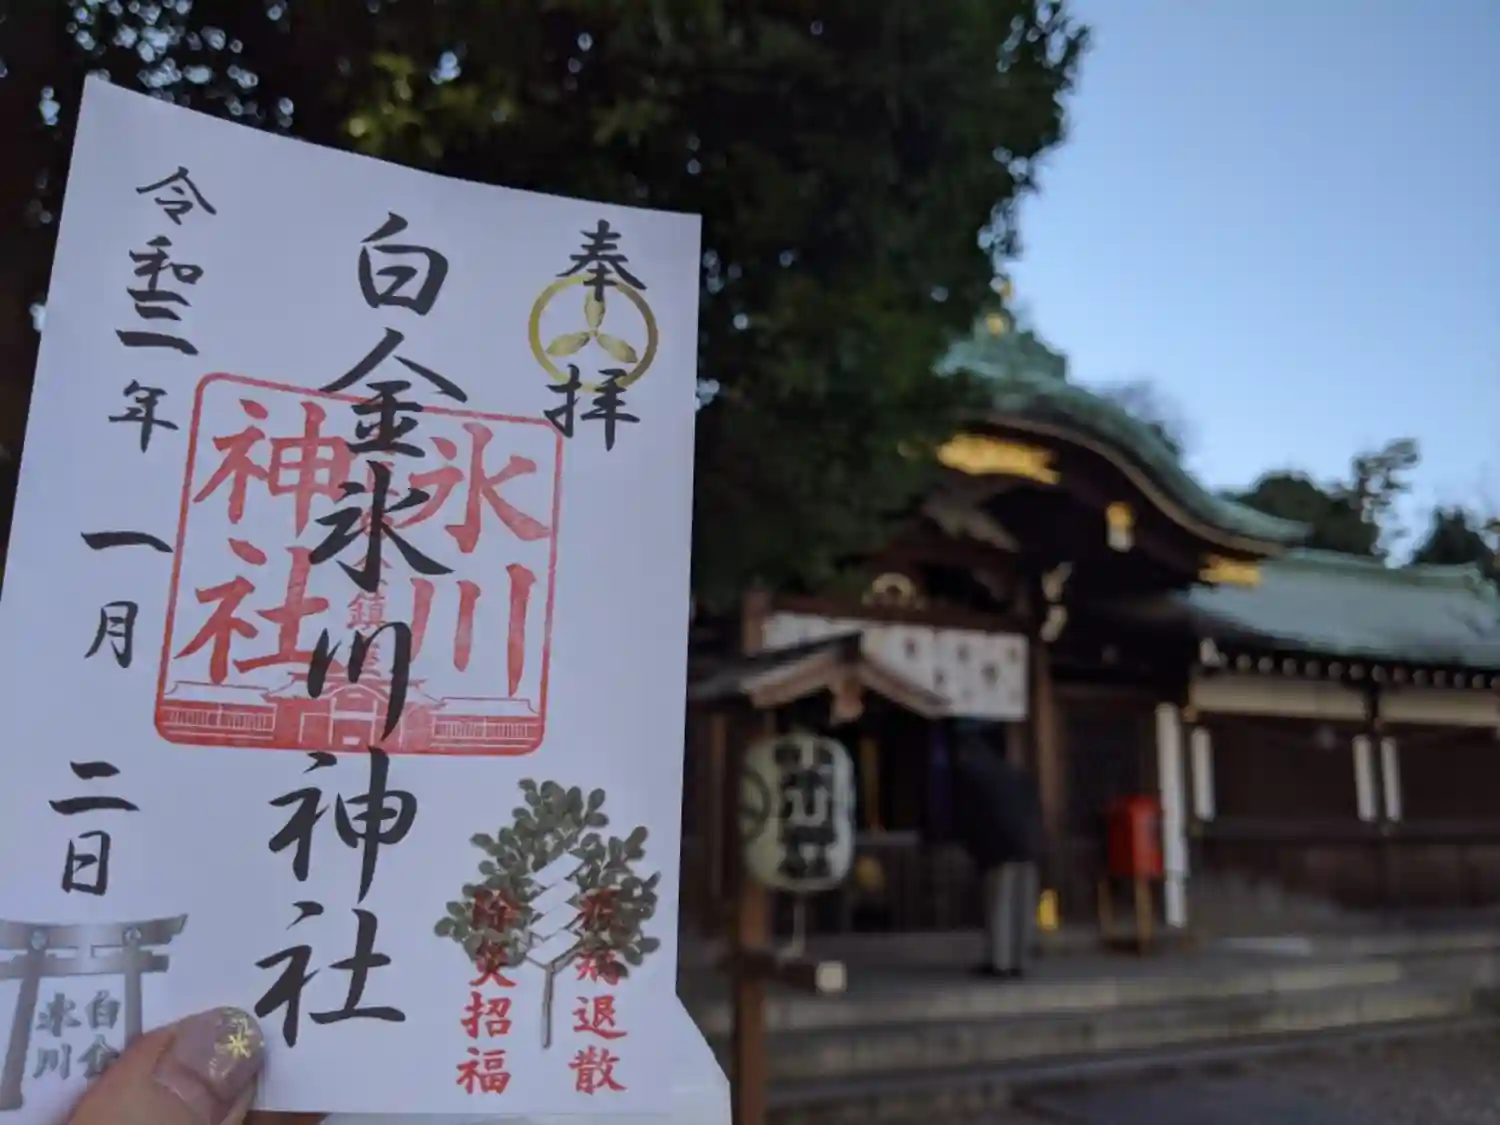 奉拝
白金氷川神社
令和三年
一月
二日
氷川
神社
鎮
病退散
除災招福
白金
氷川